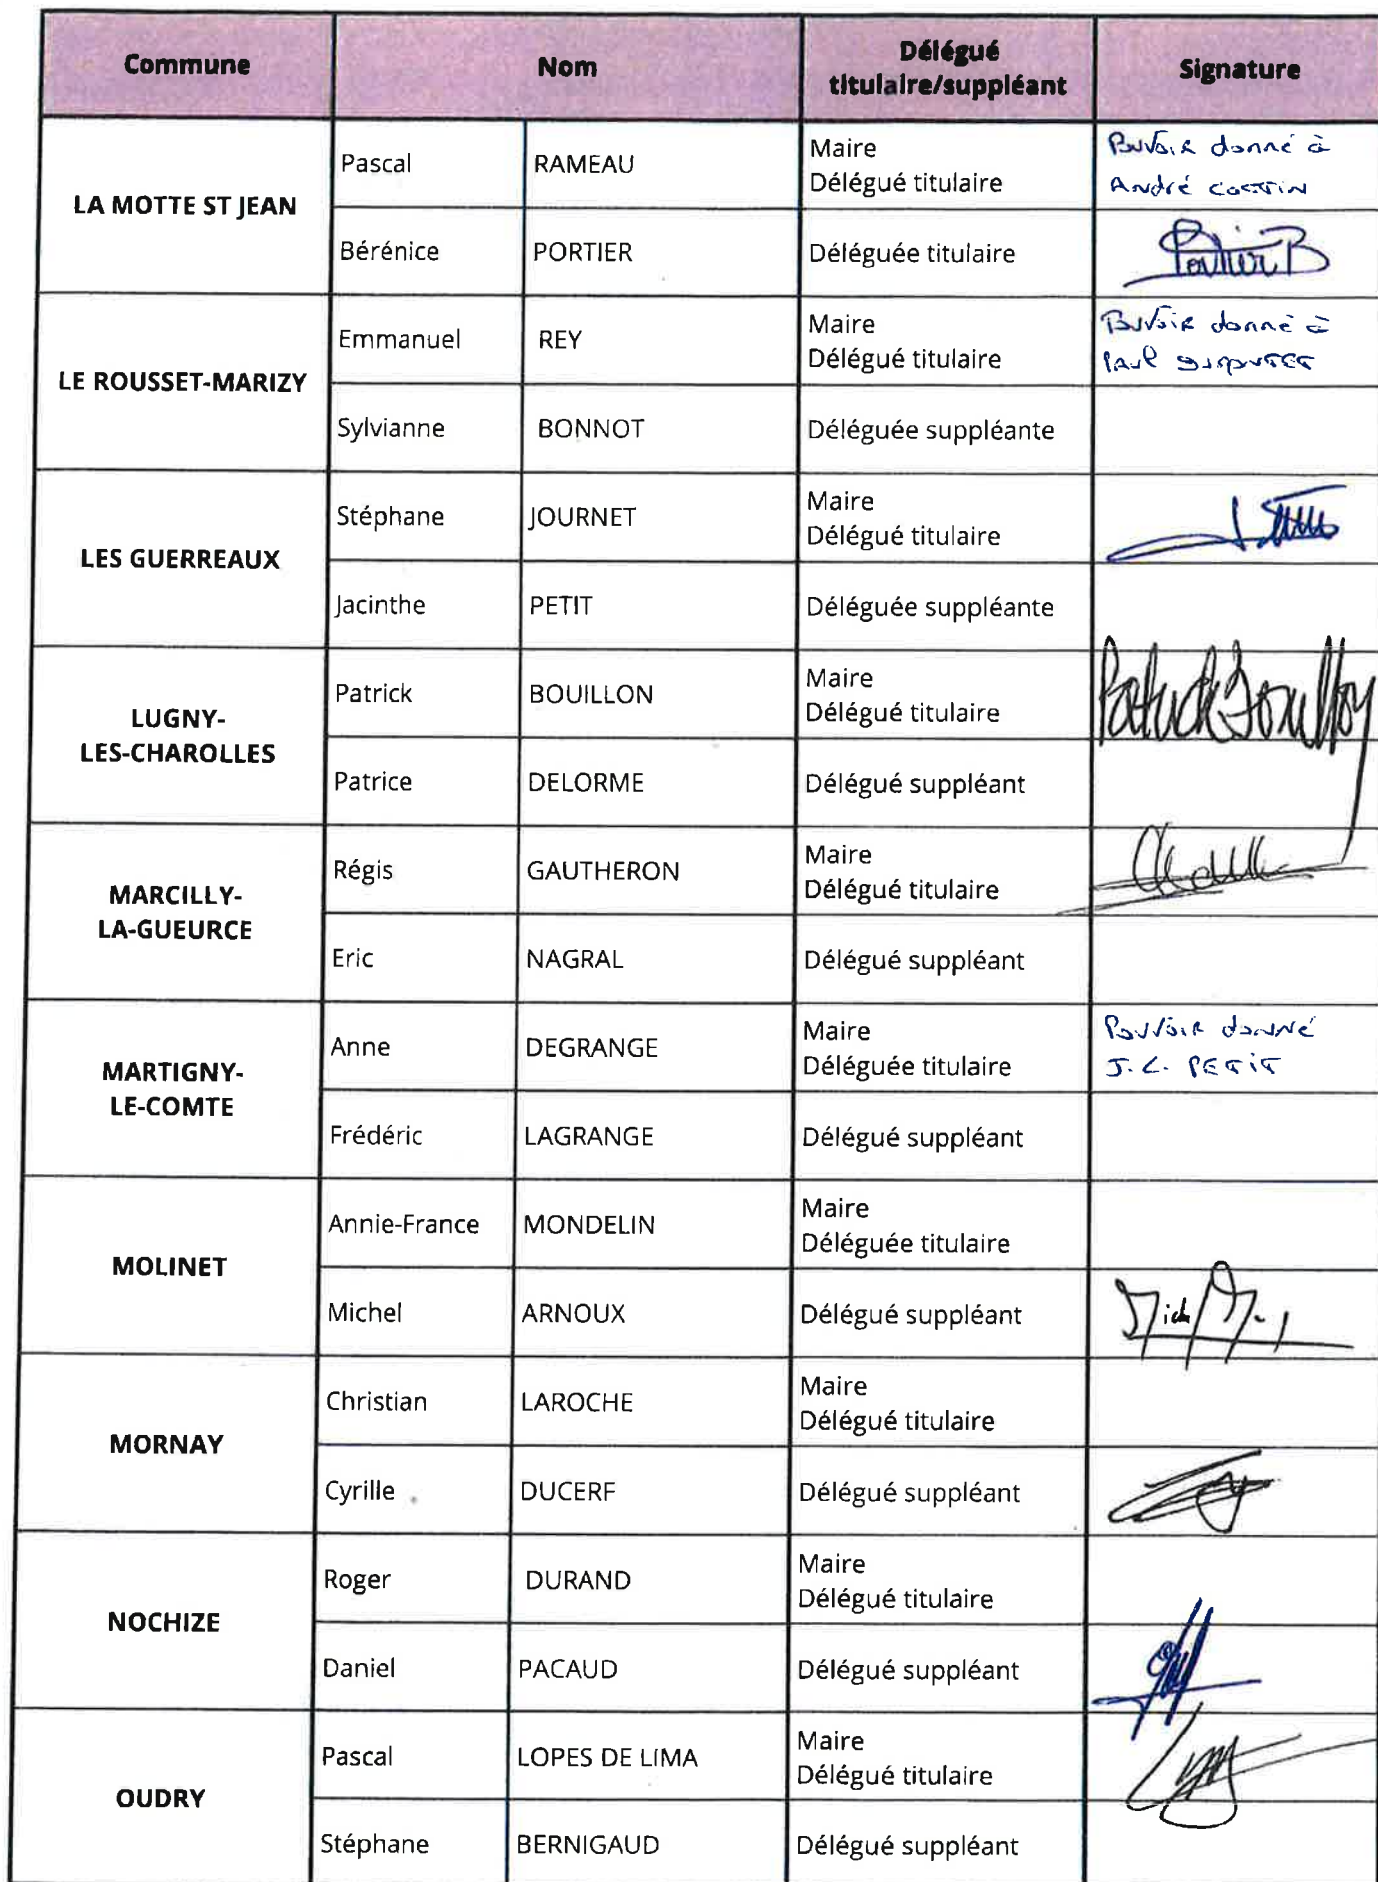 Commune
Nom
Délégué
titulaire/suppléant
Signature
LA MOTTE ST JEAN
Pascal
RAMEAU
Maire
Délégué titulaire
Pouvoir donné à
André
Bérénice
PORTIER
Déléguée titulaire
Portier B
LE ROUSSET-MARIZY
Emmanuel
REY
Maire
Délégué titulaire
Pouvoir donné à
Paul
Sylvianne
BONNOT
Déléguée suppléante
LES GUERREAUX
Stéphane
JOURNET
Maire
Délégué titulaire
Jacinthe
PETIT
Déléguée suppléante
LUGNY-
LES-CHAROLLES
Patrick
BOUILLON
Maire
Délégué titulaire
Patrick
Patrice
DELORME
Délégué suppléant
MARCILLY-
LA-GUEURCE
Régis
GAUTHERON
Maire
Délégué titulaire
Eric
NAGRAL
Délégué suppléant
MARTIGNY-
LE-COMTE
Anne
DEGRANGE
Maire
Déléguée titulaire
Pouvoir donné
J.C. PETIT
Frédéric
LAGRANGE
Délégué suppléant
MOLINET
Annie-France
MONDELIN
Maire
Déléguée titulaire
Michel
ARNOUX
Délégué suppléant
MORNAY
Christian
LAROCHE
Maire
Délégué titulaire
Cyrille
DUCERF
Délégué suppléant
NOCHIZE
Roger
DURAND
Maire
Délégué titulaire
Daniel
PACAUD
Délégué suppléant
OUDRY
Pascal
LOPES DE LIMA
Maire
Délégué titulaire
Stéphane
BERNIGAUD
Délégué suppléant